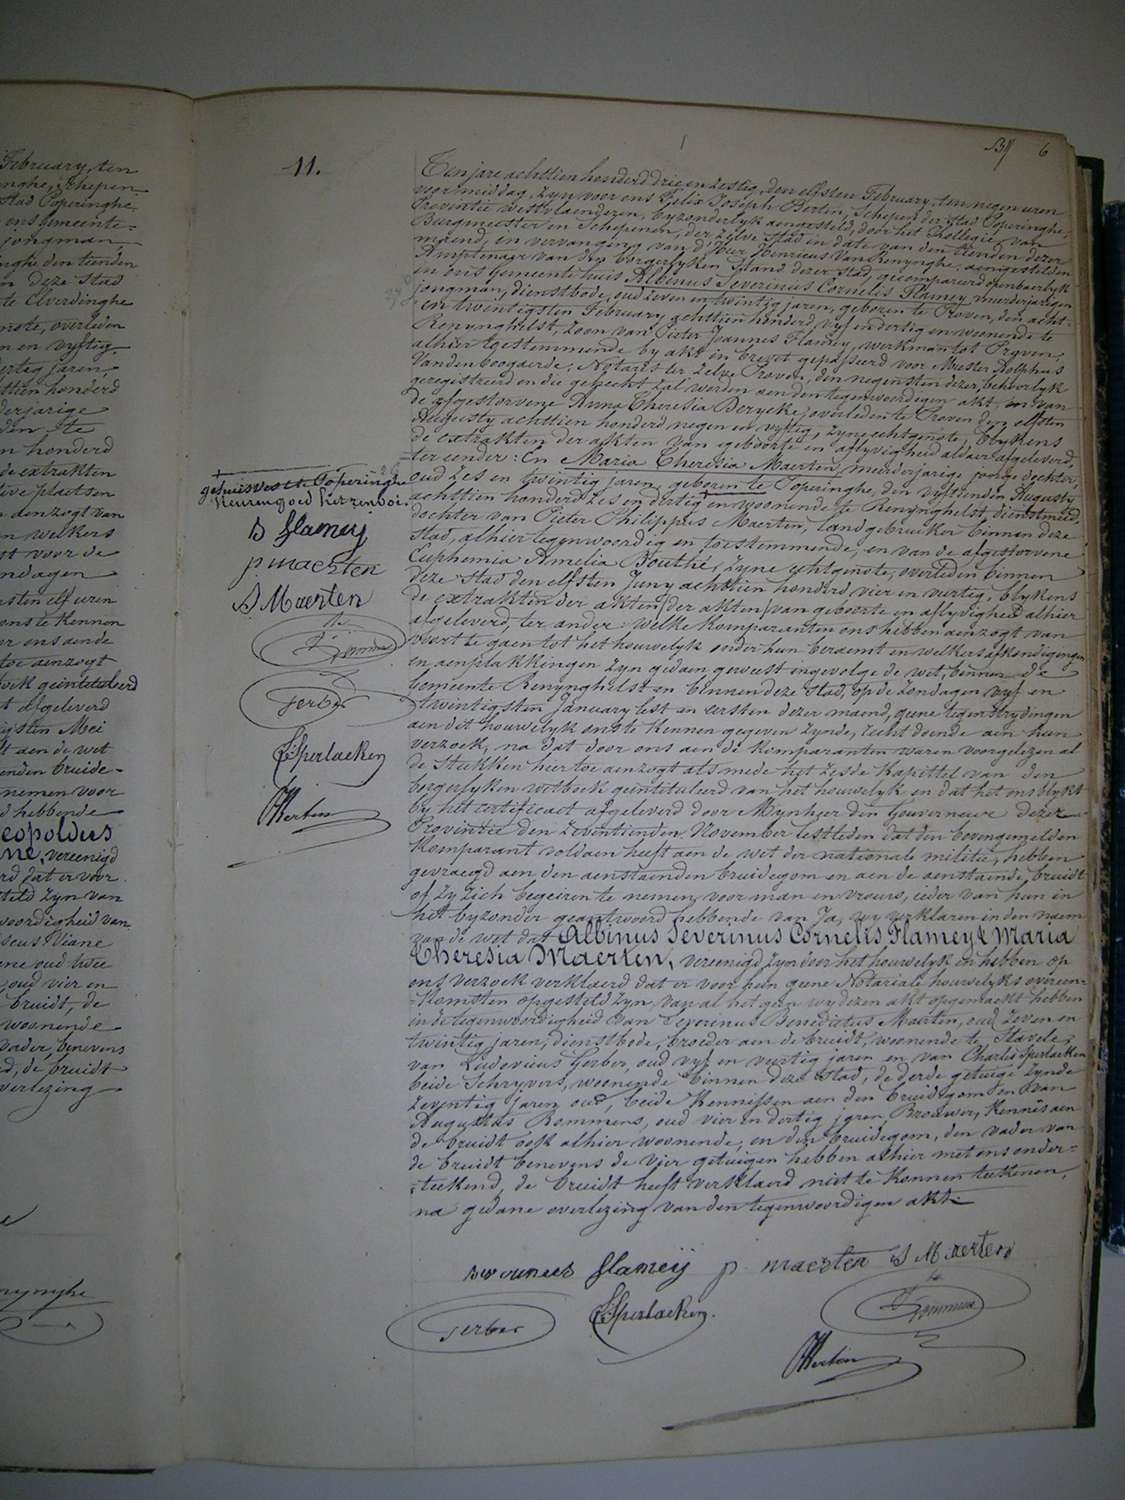 February, ten
Schepen
Stad Poperinghe,
ons Gemeente-
jongman,
den tienden
deze Stad
te Elverdinghe
overleden
en vyftig,
jaren,
honderd
derjarige
honderd
de extrakten
plaatsen
aenzogt van
welkers
voor de
Zondagen
elf uren
te kennen
ons aende
toe aenzogt
boek geïntituleerd
afgeleverd
Mei
aen de wet
bruide-
nemen voor
hebbende
Leopoldus
vereenigd
dat er voor
zyn van
woordigheid van
Viane
oud twee
oud vier en
bruidt, de
woonende
vader, benevens
de bruidt
verlezing
11.
6
Ten jare achttien honderd drie en zestig, den elfsten February, ten negen uren
voormiddag, zyn voor ons Felix Joseph Bertin, Schepen der Stad Poperinghe,
Provintie Westvlaenderen, byzonderlyk aengesteld, door het Collegie van
Burgmeester en Schepenen, der zelve Stad in date van den tienden dezer
maend, en vervanging van d'Heer Henricus Van Renynghe, aengestelden
Amptenaer van den borgerlyken Stand dezer Stad, gecompareerd openbaerlyk
in ons Gemeentehuis Albinus Severinus Cornelis Flamey, meerderjarigen
jongman, dienstbode, oud zeven en twintig jaren, geboren te Proven, den acht-
-en twintigsten February achttien honderd vyf en dertig en woonende te
Renynghelst, zoon van Pieter Joannes Flamey, werkman tot Proven,
alhier toestemmende by akt in brevet gepasseerd voor Meester Dolphus
Vandenboogaerde, Notaris ter zelve Proven, den negensten dezer, behoorlyk
geregistreerd en die gehecht zal worden aen den tegenwoordigen akt, en van
de afgestorvene Anna Theresia Derycke, overleden te Proven den elfsten
Augusty achttien honderd negen en vyftig, zyne echtgenote, blykens
de extrakten der akten van geboorte en aflyvigheid aldaer afgeleverd,
ter eender: En Maria Theresia Maerten, meerderjarige jonge dochter,
oud zes en twintig jaren, geboren te Poperinghe, den vyftienden Augusty
achttien honderd zes en dertig en woonende te Renynghelst dienstmeid,
dochter van Pieter Philippus Maerten, landgebruiker binnen deze
Stad, alhier tegenwoordig en toestemmende, en van de afgestorvene
Euphemia Amelia Bouthé, zyne echtgenote, overleden binnen
deze Stad den elfsten Juny achttien honderd vier en veertig, blykens
de extrakten der akten der akten van geboorte en aflyvigheid alhier
afgeleverd, ter ander: Welke Komparanten ons hebben aenzogt van
voort te gaen tot het houwelyk onder hun beraemt en welkers afkondigingen
en aenplakkingen zyn gedaen geweest ingevolge de wet, binnen de
Gemeente Renynghelst en binnen deze Stad, op de Zondagen vyf en
twintigsten January lest en eersten dezer maend, geene tegenstrydingen
aen dit houwelyk ons te kennen gegeven zynde, recht doende aen hun
verzoek, na dat door ons aen de Komparanten waren voorgelezen al
de Stukken hiertoe aenzogt als mede het zesde kapittel van den
borgerlyken wetboek geïntituleerd van het houwelyk en dat het ons blykt
by het certificaet afgeleverd door Mynheer den Gouverneur dezer
Provintie den zeventienden November lestleden dat den bovengemelden
Komparant voldaen heeft aen de wet der nationale militie, hebben
gevraegd aen den aenstaenden bruidegom en aen de aenstaende bruidt
of zy zich begeiren te nemen voor man en vrouw, ieder van hun in
het byzonder geantwoord hebbende van Ja, wy verklaren in den naem
van de wet dat Albinus Severinus Cornelis Flamey & Maria
Theresia Maerten, vereenigd zyn door het houwelyk en hebben op
ons verzoek verklaerd dat er voor hun geene Notariale houwelyks overeen-
-komsten opgesteld zyn, van al het gein wy dezen akt opgemaekt hebben
in de tegenwoordigheid van Severinus Benedictus Maerten, oud zeven en
twintig jaren, dienstbode, broeder aen de bruidt, woonende te Stavele,
van Ludovicus Gerber, oud vyf en veertig jaren en van Charles Sperlaeken
beide Schryvers, woonende binnen deze Stad, de derde getuige zynde
zeventig jaren oud, beide kennissen aen den bruidegom en van
Augustus Rommens, oud vier en dertig jaren, Brouwer, kennis aen
de bruidt ook alhier woonende, en den bruidegom, den vader van
de bruidt benevens de vier getuigen hebben alhier met ons onder-
-teekend, de bruidt heeft verklaerd niet te konnen teekenen,
na gedane overlezing van den tegenwoordigen akt.
gehuisvest te Poperinghe
S flameij
p. maerten
S Maerten
Rommens
Gerber
CSperlaeken
FBertin
flameij p. maerten S Maerten
Gerber
CSperlaeken.
Rommens
FBertin